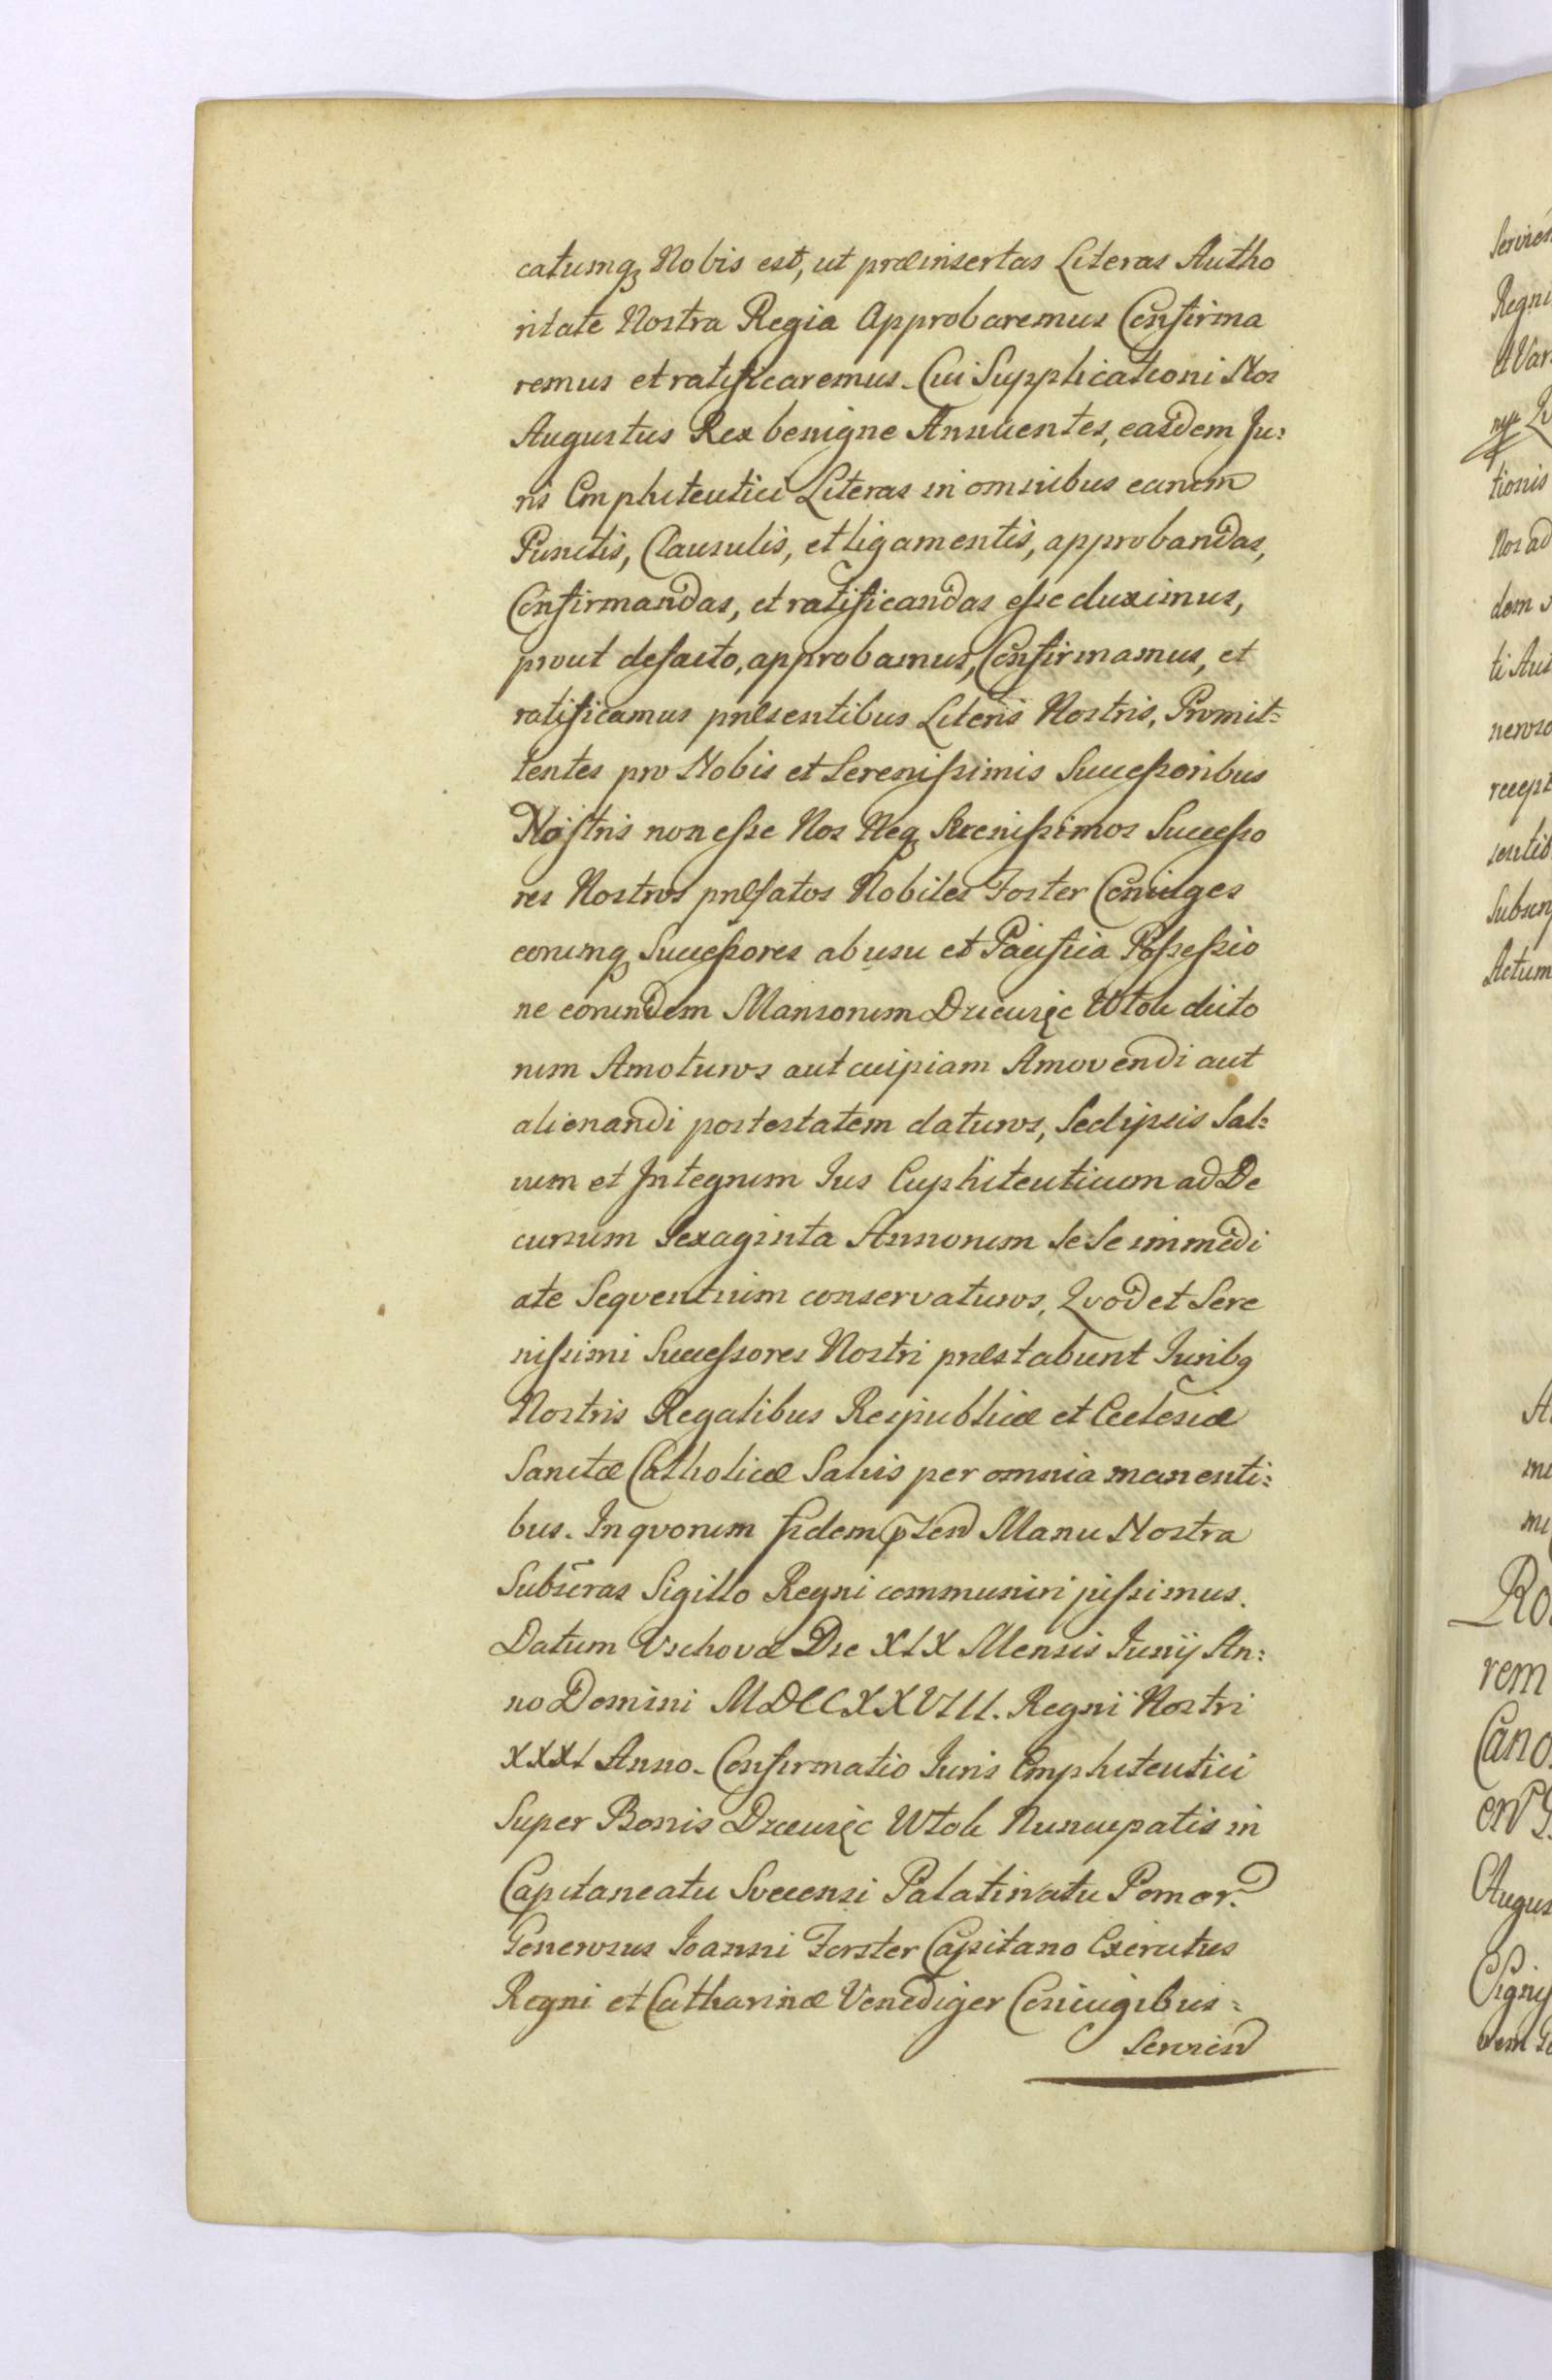 catumq3 Nobis est, ut præinsertas Literas Autho
ritate Nostra Regia Approbaremus Confirma
remus et ratificaremus. Cui Supplicationi Nos
Augustus Rex benigne Annuentes, easdem Ju:
ris Emphiteutici Literas in omnibus earum
Punctis, Clausulis, et ligamentis, approbandas,
Confirmandas, et ratificandas esse duximus,
prout defacto, approbamus, Confirmamus, et
ratificamus præsentibus Literis Nostris, Promit=
tentes pro Nobis et Serenissimis Successoribus
Nostris non esse Nos Neq3 Serenissimos Successo
res Nostros præfatos Nobiles Foster Coniuges
eorumq3 Successores ab usu et Pacifica Possessio
ne eorundem Mansorum Dziewięc Wlok dicto
rum Amoturos aut cuipiam Amovendi aut
alienandi postestatem daturos, Sed ipsis Sal:
vum et Integrum Ius Emphiteuticum ad De
cursum Sexaginta Annorum Se Se immedi
ate Seqventium conservaturos, Qvod et Sere
nissimi Successores Nostri præstabunt Iurib9
Nostris Regalibus Reipublicæ et Ecclesiæ
Sanctæ Catholicæ Salvis per omnia manenti:
bus. In qvorum fidem Manu Nostra
Subscras Sigillo Regni communiri jussimus.
Datum Vschovæ Die XIX Mensis Iunij An:
no Domini MDCCXXVIII. Regni Nostri
XXXI Anno. Confirmatio Iuris Emphiteutici
Super Bonis Dziewięc Wlok Nuncupatis in
Capitaneatu Svecensi Palatinatu Pomor.
Generosus Ioanni Forster Capitano Exercitus
Regni et Catharinæ Venediger Coniugibus:
Servien